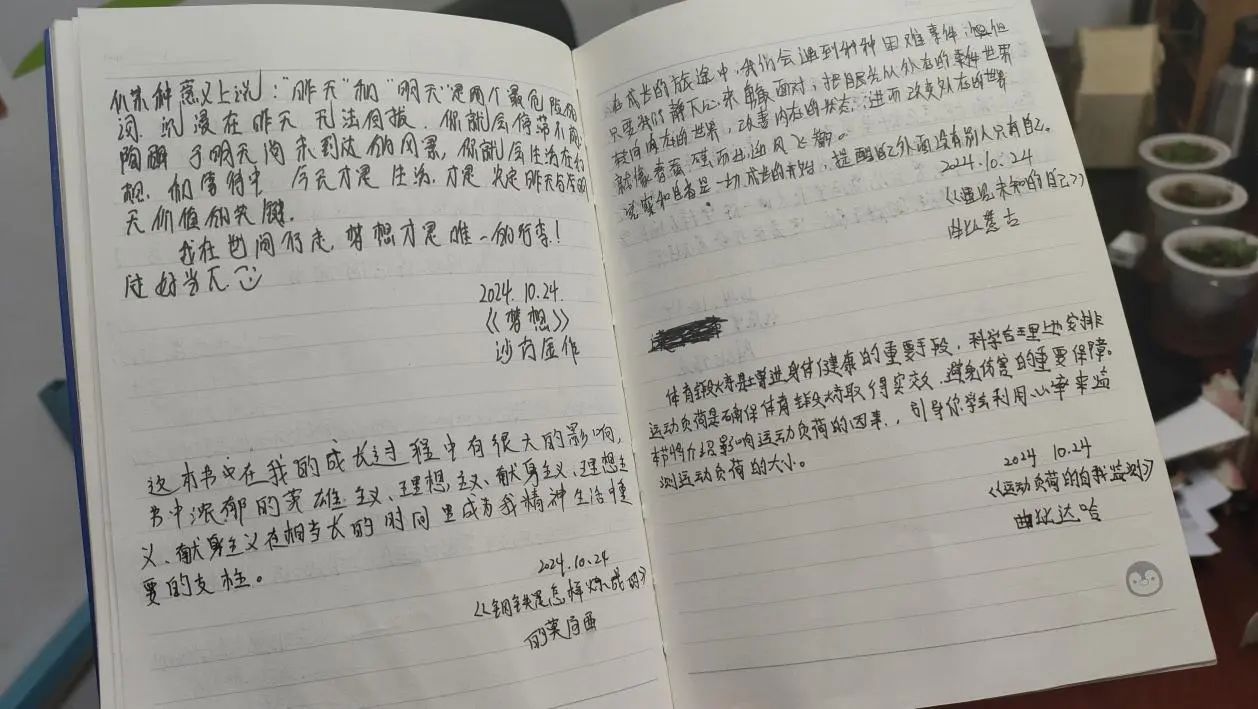 从某种意义上说："昨天"和"明天"是两个最危险的
词.沉浸在昨天无法自拔.你就会停滞不前
陶醉于明天尚未到达的风景,你就会生活在幻
想.和等待中 今天才是生活.才是决定昨天与
天价值的关键.
我在世间行走,梦想才是唯一的行李!
过好当下
2024.10.24.
《梦想》
沙力金作
这本书中在我的成长过程中有很大的影响,
书中浓郁的英雄主义、理想主义、献身主义、理想主
义、献身主义在相当长的时间里成为我精神生活重
要的支柱。
2024.10.24
《钢铁是怎样炼成的》
在成长的旅途中,我们会遇到种种困难事件,但
只要我们静下心来面对,把目光从外在的事件世界
转向内在的世界,改善内在的状态,进而改变外在的世界
就像春蚕,继而迎风飞舞。
觉察和是一切成长的开始,提醒自己外面没有别人只有自己.
2024.10.24
《遇见未知的自己》
体育锻炼是增进身体健康的重要手段,科学合理地安排
运动负荷是确保体育锻炼取得实效、避免伤害的重要保障。
本节将介绍影响运动负荷的因素,引导你学会利用心率来监
测运动负荷的大小。
2024 10.24
《运动负荷的自我监测》